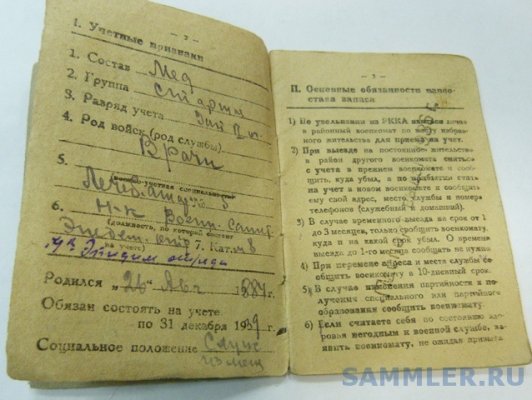 — 2 —
I. Учетные признаки
1. Состав Мед
2. Группа старш
3. Разряд учета
4. Род войск (род службы)
Врачи
5.
6. Н-к
(должность, по которой состоит
на учете) 7. Кат.
Родился „26" Авг 1884 г.
Обязан состоять на учете
по 31 декабря 1939 г.
Социальное положение Служ
из мещ
— 3 —
II. Основные обязанности начсо-
става запаса
1) По увольнении из РККА явиться лично
в районный военкомат по месту избран-
ного жительства для приема на учет.
2) При выезде на постоянное жительство
в район другого военкомата сняться
с учета в прежнем военкомате и сооб-
щить, куда убыл, а по прибытии стать
на учет в новом военкомате и сообщить
ему свой адрес, место службы и номер
телефона (служебный и домашний).
3) В случае временного выезда на срок от 1
до 3 месяцев, только сообщить военкомату,
куда и на какой срок убыл. О времени
выезда до 1-го месяца сообщить не нужно
4) При перемене адреса и места службы со-
общить военкомату в 10-дневный срок.
5) В случае изменения партийности и по-
лучения специального или партийного
образования сообщить военкомату.
6) Если считаете себя по состоянию здо-
ровья негодным к военной службе, за-
явить военкомату, не ожидая призыва
SAMMLER.RU